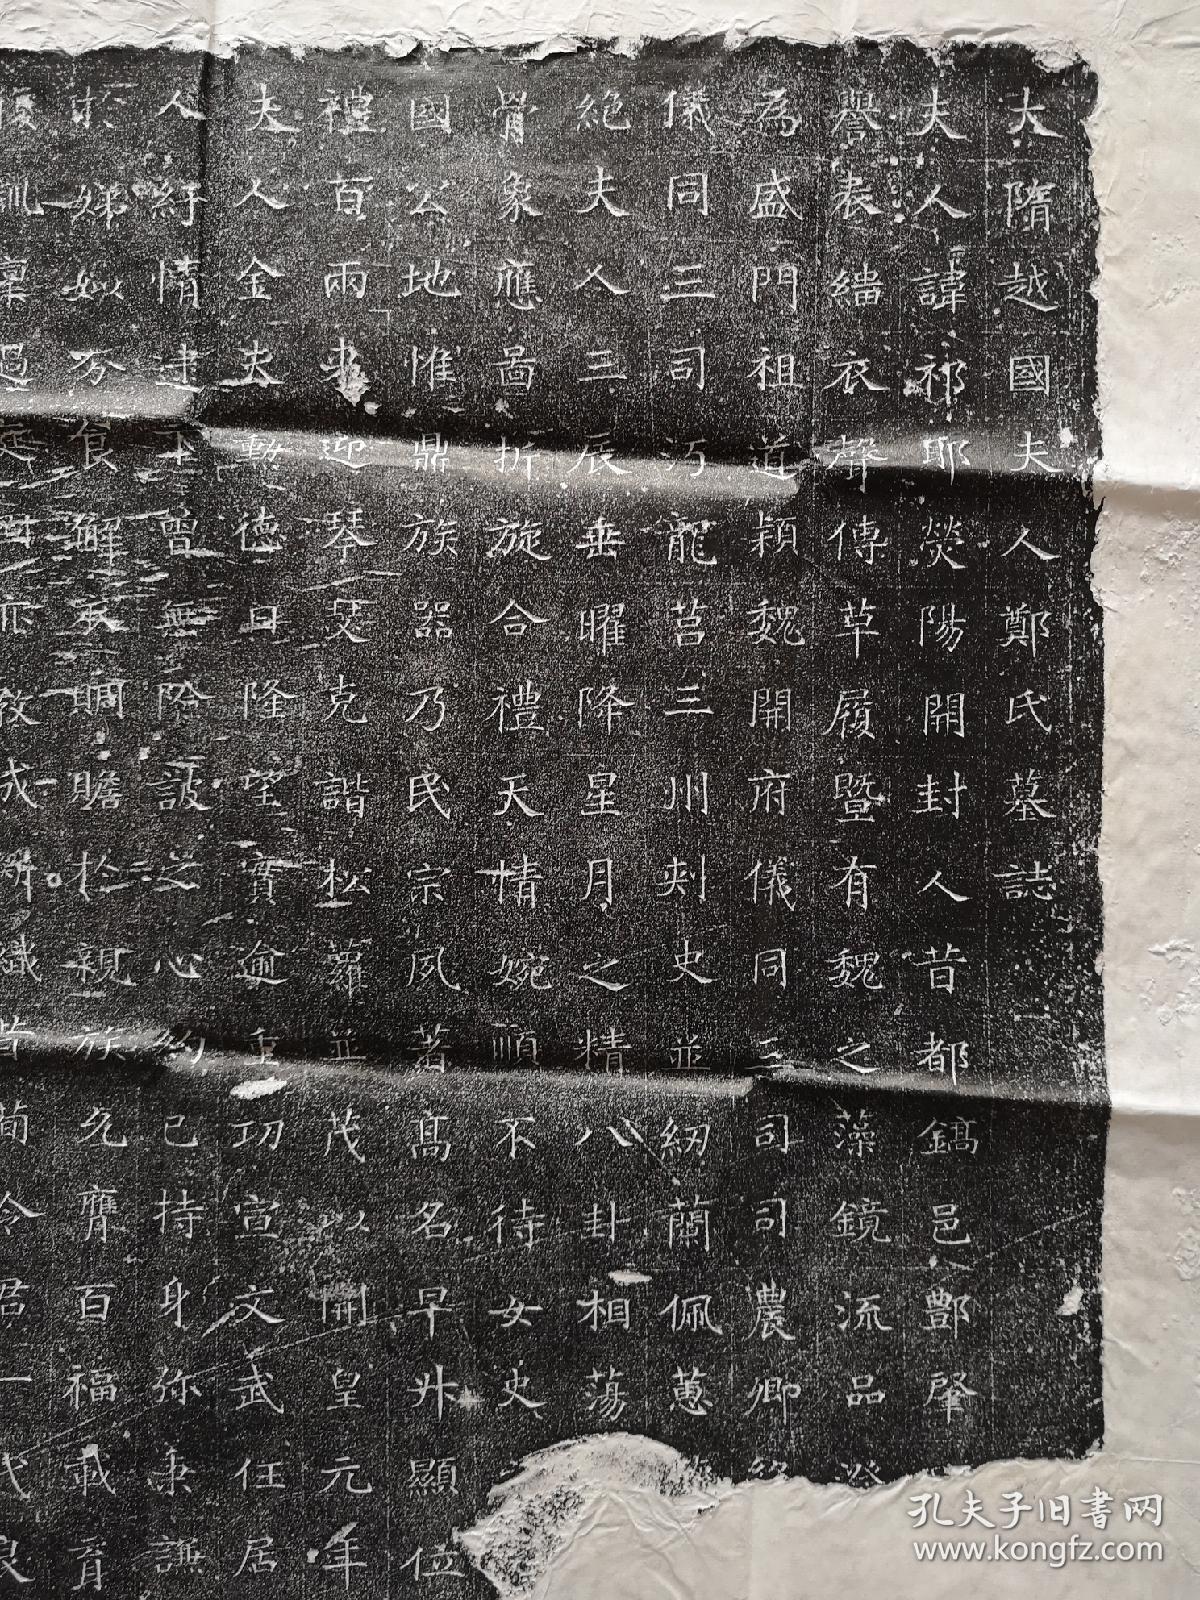 大隋越國夫人鄭氏墓誌
夫人諱祁耶熒陽開封人昔都鎬邑酆肇
譽表緇衣聲傳草履暨有魏之藻鏡流品
為盛門祖道穎魏開府儀同三司司農卿
儀同三司沔龍莒三州刾史並紉蘭佩蕙
絶夫人三辰垂曜降星月之精八卦相蕩
骨象應啚折旋合禮天情婉順不待女史
國公地惟鼎族器乃民宗夙著髙名早升顯位
禮百兩來迎琴瑟克諧松蘿並茂以開皇元年
夫人金夫勳德日隆望實逾重功宣文武任居
人紆情逮下曾無險詖之心約己持身弥秉謙
於娣姒分食解衣賙贍於親族允膺百福載育
教成斷織
孔夫子旧书网
www.kongfz.com